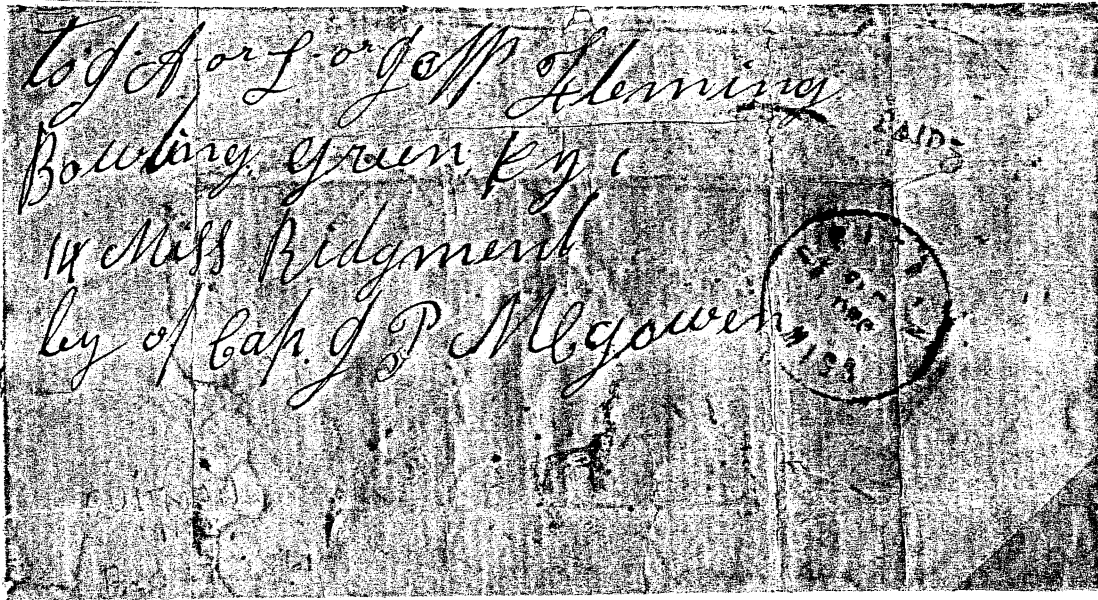 to J A or L or Jeff Fleming
Bowling green, ky,
14 Miss Ridgment
by of Cap. J P McGowen
PAID 5
MISS